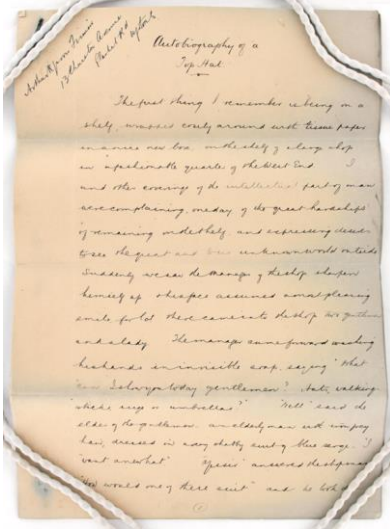 Autobiography of a
Top Hat.
The first thing I remember is being on a
shelf, wrapped cosily around with tissue paper
in a nice new box, on the shelf of a large shop
in a fashionable quarter of the West End. I
and other coverings of the intellectual part of man
were complaining, one day, of the great hardships
of remaining on the shelf, and expressing desires
to see the great and unknown world outside
Suddenly we saw the manager of the shop sharpen
himself up & his face assumed a most pleasing
smile for lo! there came into the shop two gentlemen
and a lady. The manager came forward washing
his hands in invisible soap, saying "What
can I show you today gentlemen? Hats, walking
sticks or umbrellas?" "Well" said the
elder of the gentlemen, an elderly man with iron grey
hair, dressed in a suit of blue serge. "I
want a hat" "Yessir" answered the shopman
"How would one of these suit" and he